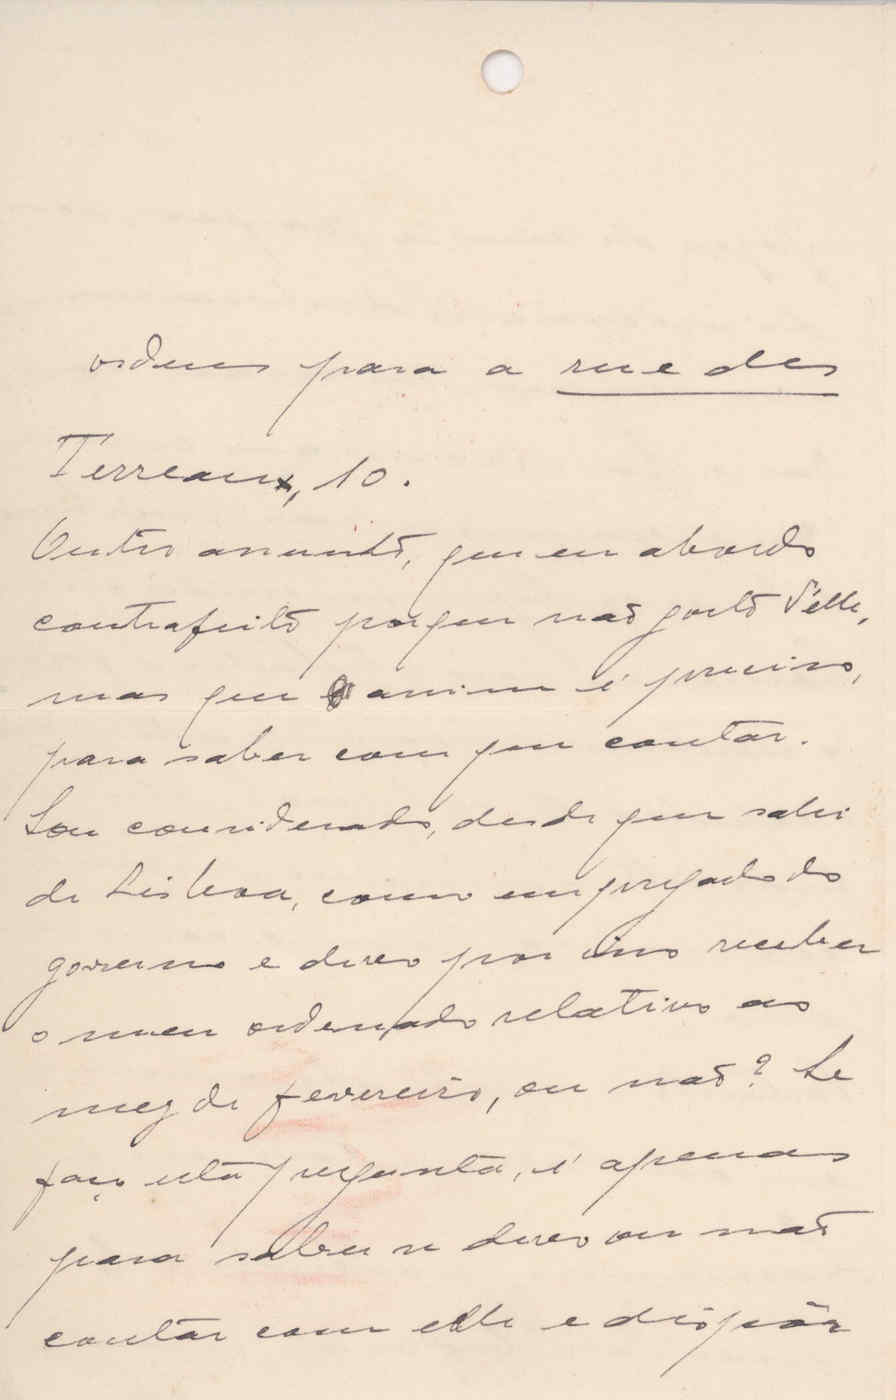 ordens para a rue des
Terreaux, 10.
Outro assunto, que eu abordo
contrafeito porque não gosto d'elle,
mas que assim é preciso,
para saber com que contar.
Sou considerado, desde que sahi
de Lisboa, como empregado do
governo e devo por isso receber
o meu ordenado relativo ao
mez de fevereiro, ou não? Se
faço esta pregunta, é apenas
para saber se devo ou não
contar com elle e dispôr